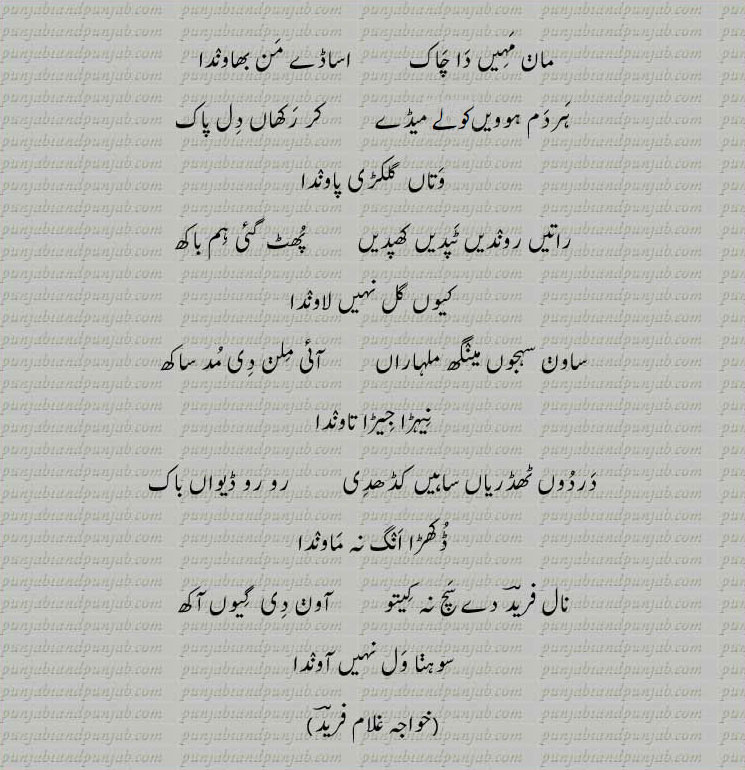 مان مَہِیں دَا چَاک اساڈے مَن بھاوݨدا
ہَر دَم ہوویں کولے میڈے کر رَکھاں دِل پاک
وَتاں گلکڑی پاوݨدا
راتیں روندیں ٹَپدیں کھپدیں پُھٹ گئی ہِم باکھ
کیوں گل نہیں لاوݨدا
ساون سہجوں مینگھ ملہاراں آئی مِلن دِی مُد ساکھ
نِیہڑا جِیڑا تاوݨدا
دَردُوں ٹھڈڑیاں ساہیں کڈھدِی رو رو ڈیواں باک
ڈُکھڑا اَنگ نہ مَاوݨدا
نال فریدؔ دے سَچ نہ کِیتو آون دِی گِیوں آکھ
سوہݨا وَل نہیں آوݨدا
(خواجہ غلام فریدؔ)